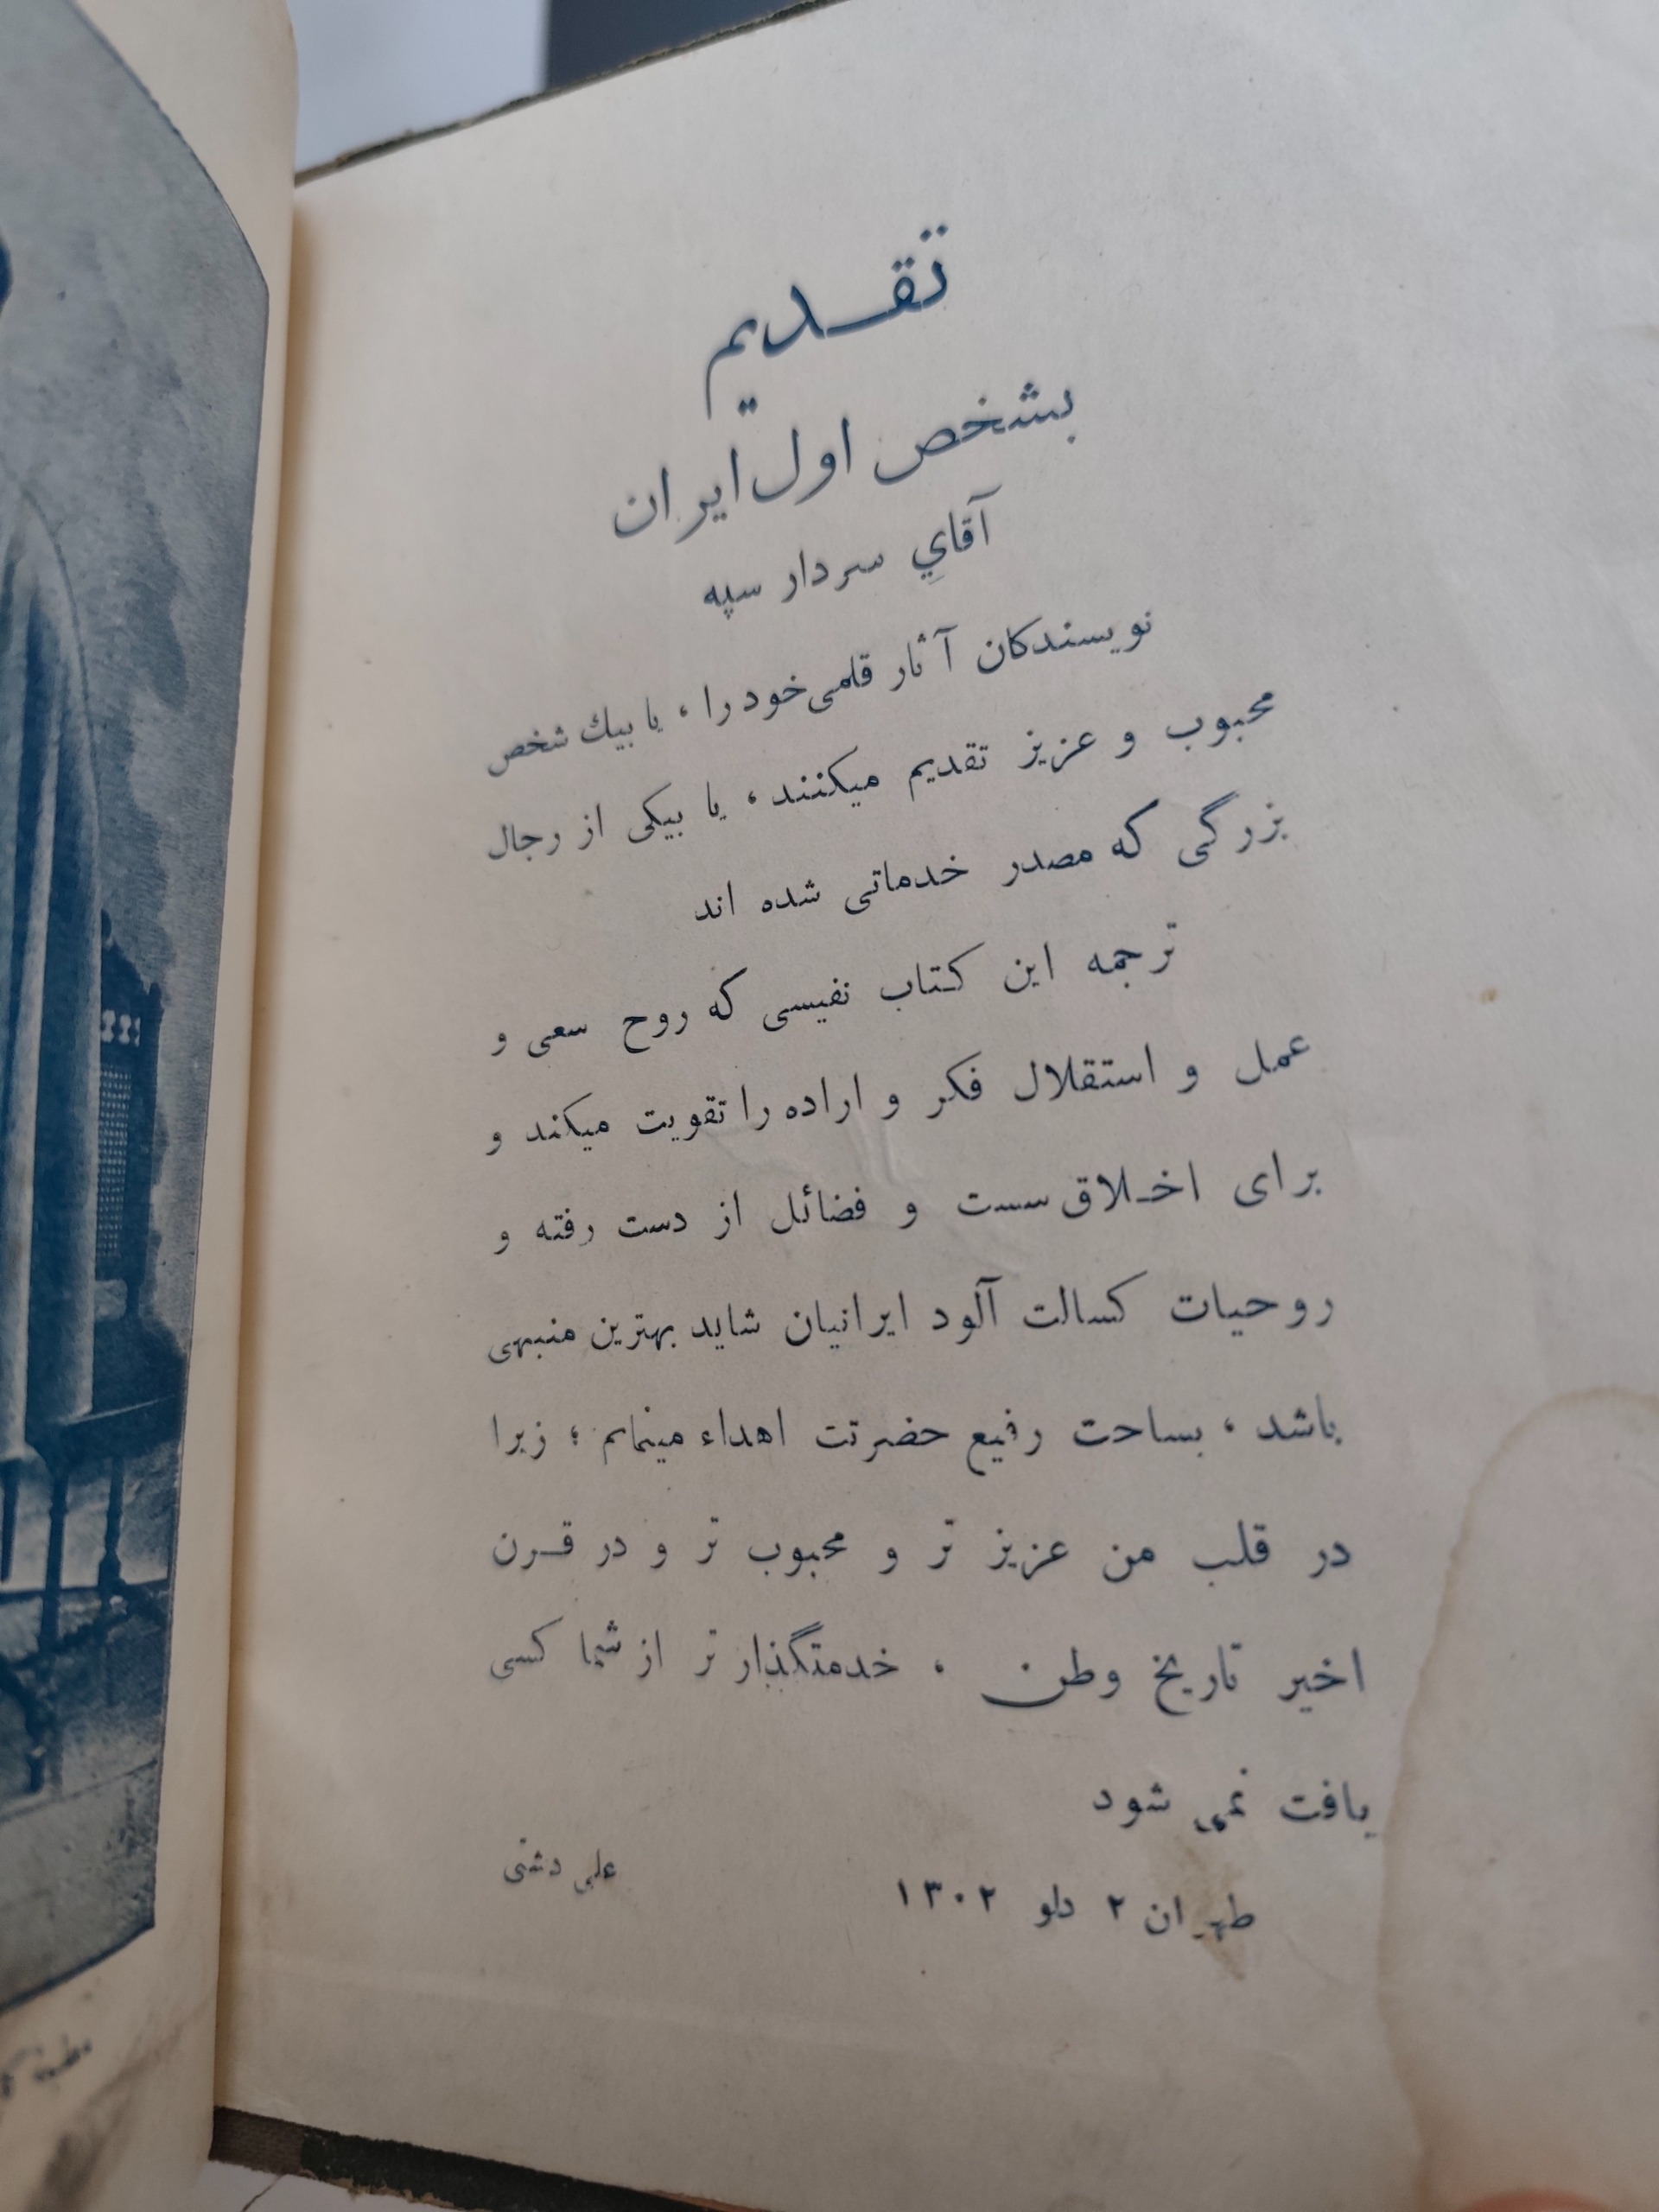 تقدیم
بشخص اول ایران
آقاي سردار سپه
نویسندکان آثار قلمی خود را ، یا بیك شخص
محبوب و عزیز تقدیم میکنند ، یا بیکی از رجال
بزرگی که مصدر خدماتی شده اند
ترجمه این کتاب نفیسی که روح سعی و
عمل و استقلال فکر و اراده را تقویت میکند و
برای اخلاق سست و فضائل از دست رفته و
روحیات کسالت آلود ایرانیان شاید بهترین منبهی
باشد ، بساحت رفیع حضرتت اهداء مینمایم ؛ زیرا
در قلب من عزیز تر و محبوب تر و در قرن
اخیر تاریخ وطن ، خدمتگذار تر از شما کسی
یافت نمی شود
علی دشتی
طهران ۲ دلو ۱۳۰۲